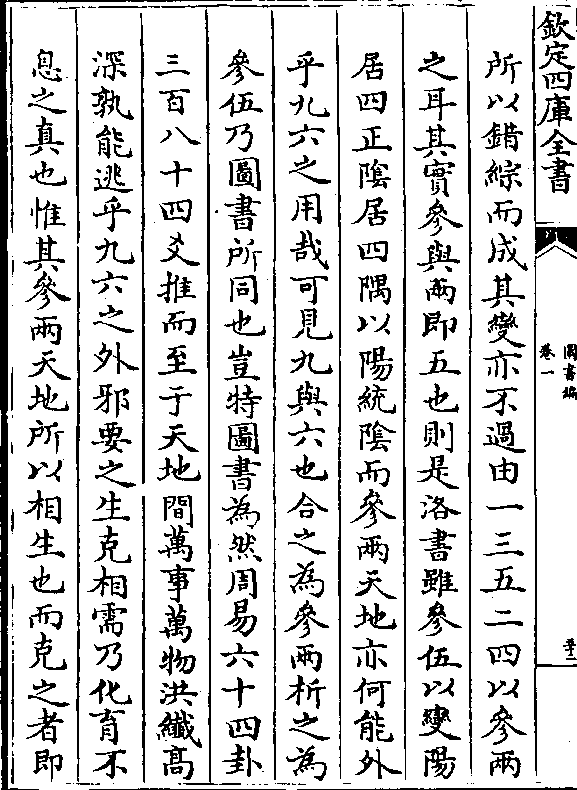 欽定四庫全書
圖書編
卷一
所以錯綜而成其變亦不過由一三五二四以參兩
之耳其實參與兩即五也則是洛書雖參伍以變陽
居四正陰居四隅以陽統陰而參兩天地亦何能外
乎九六之用哉可見九與六也合之為參兩析之為
參伍乃圖書所同也豈特圖書為然周易六十四卦
三百八十四爻推而至于天地間萬事萬物洪纖高
深孰能逃乎九六之外邪要之生克相需乃化育不
息之真也惟其參兩天地所以相生也而克之者即